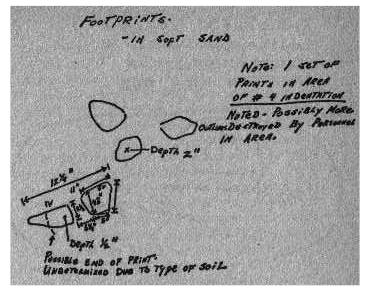 FOOTPRINTS.
- IN SOFT SAND
NOTE: 1 SET OF
PRINTS IN AREA
OF # 4 INDENTATION
NOTED - POSSIBLY MORE
OUTLINE DESTROYED BY PERSONNEL
IN AREA.
DEPTH 2"
11"
DEPTH 1/2"
POSSIBLE END OF PRINT.
UNDETERMINED DUE TO TYPE OF SOIL